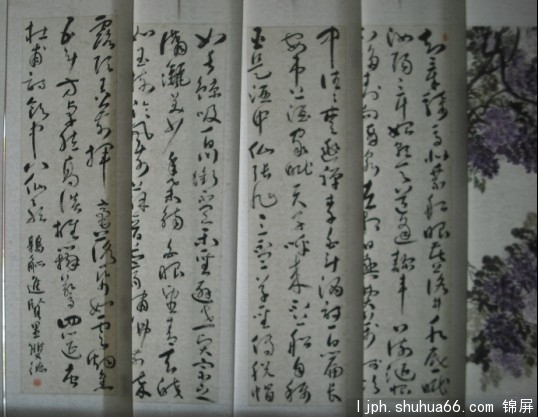 知章騎馬似乘船眼花落井水底眠
汝陽三斗始朝天道逢麯車口流涎恨不
移封向酒泉左相日興費萬錢飲
中往往愛逃禪李白斗酒詩百篇長
安市上酒家眠天子呼來不上船自稱
臣是酒中仙張旭三杯草聖傳脫帽
如長鯨吸百川銜杯樂聖稱避賢宗之
瀟灑美少年舉觴白眼望青天皎
如玉樹臨風前蘇晉長齋繡佛前醉
露頂王公前揮毫落紙如雲煙焦遂
五斗方卓然高談雄辯驚四筵
杜甫詩飲中八仙歌
ljph.shuhua66.com 锦屏